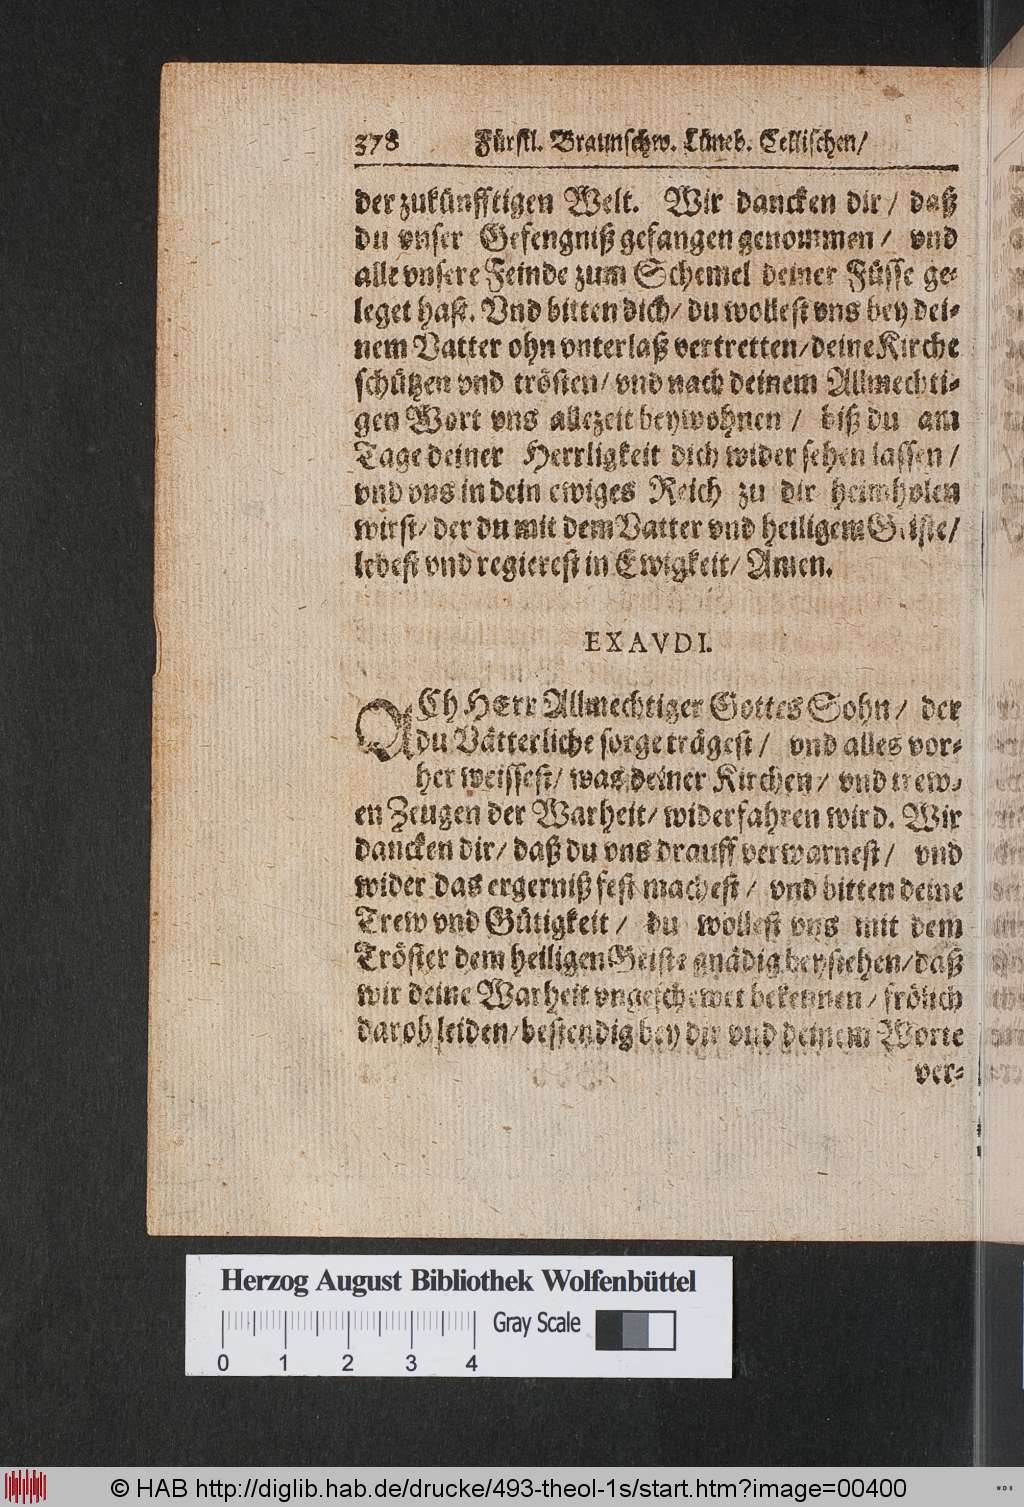 378 Fürstl. Braunschw. Lüneb. Cellischen/
der zukünfftigen Welt. Wir dancken dir / daß
du vnser Gefengniß gefangen genommen / vnd
alle vnsere Feinde zum Schemel deiner Füsse ge-
leget hast. Vnd bitten dich/ du wollest vns bey dei-
nem Vatter ohn vnterlaß vertretten/ deine Kirche
schützen vnd trösten/ vnd nach deinem Allmechti-
gen Wort vns allezeit beywohnen / biß du am
Tage deiner Herrligkeit dich wider sehen lassen /
vnd vns in dein ewiges Reich zu dir heimholen
wirst/ der du mit dem Vatter vnd heiligem Geiste/
lebest vnd regierest in Ewigkeit/ Amen.
EXAVDI.
ACh HErr Allmechtiger Gottes Sohn / der
du Vätterliche sorge trägest / vnd alles vor-
her weissest/ was deiner Kirchen / vnd trew-
en Zeugen der Warheit/ widerfahren wird. Wir
dancken dir/ daß du vns drauff verwarnest / vnd
wider das ergerniß fest machest / vnd bitten deine
Trew vnd Gütigkeit / du wollest vns mit dem
Tröster dem heiligen Geiste gnädig beystehen/ daß
wir deine Warheit vngeschewet bekennen / frölich
darob leiden/ bestendig bey dir vnd deinem Worte
ver-
Herzog August Bibliothek Wolfenbüttel
Gray Scale
0 1 2 3 4
© HAB http://diglib.hab.de/drucke/493-theol-1s/start.htm?image=00400